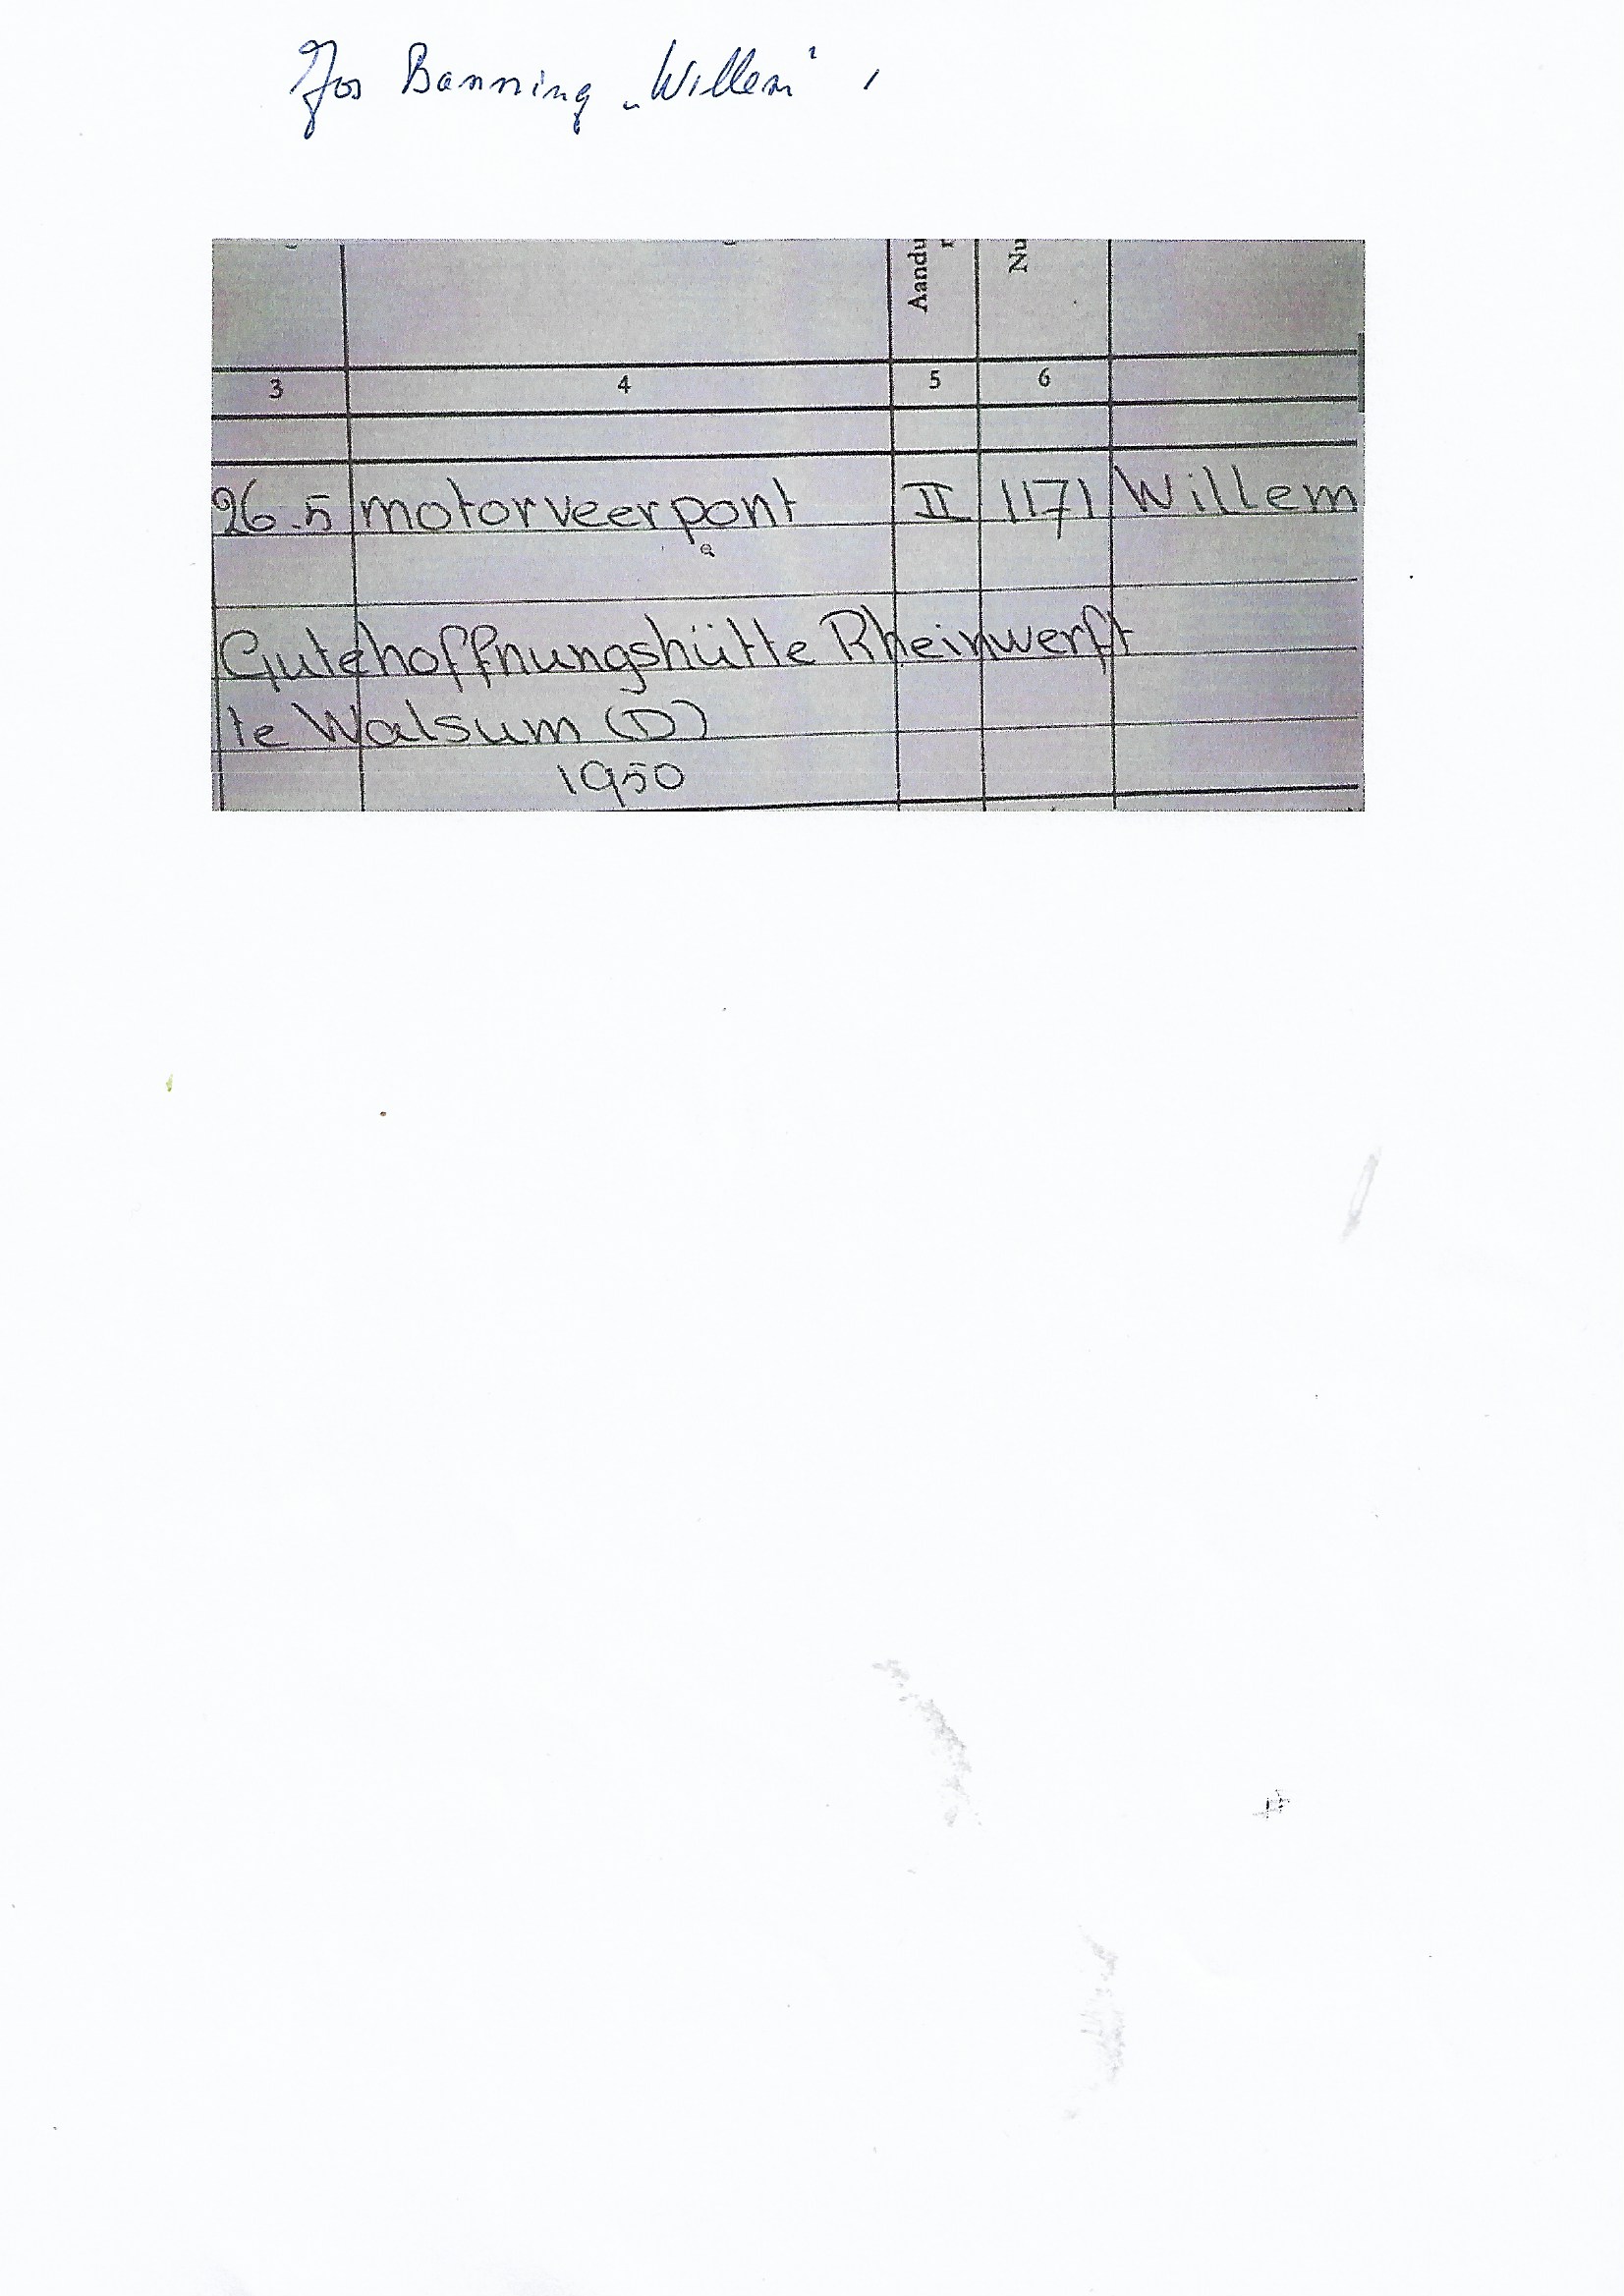 Jos Banning „Willem"
Aandu
Nu
3 4 5 6
26.5 motorveerpont II 1171 Willem
Gutehoffnungshütte Rheinwerft
te Walsum (D)
1950